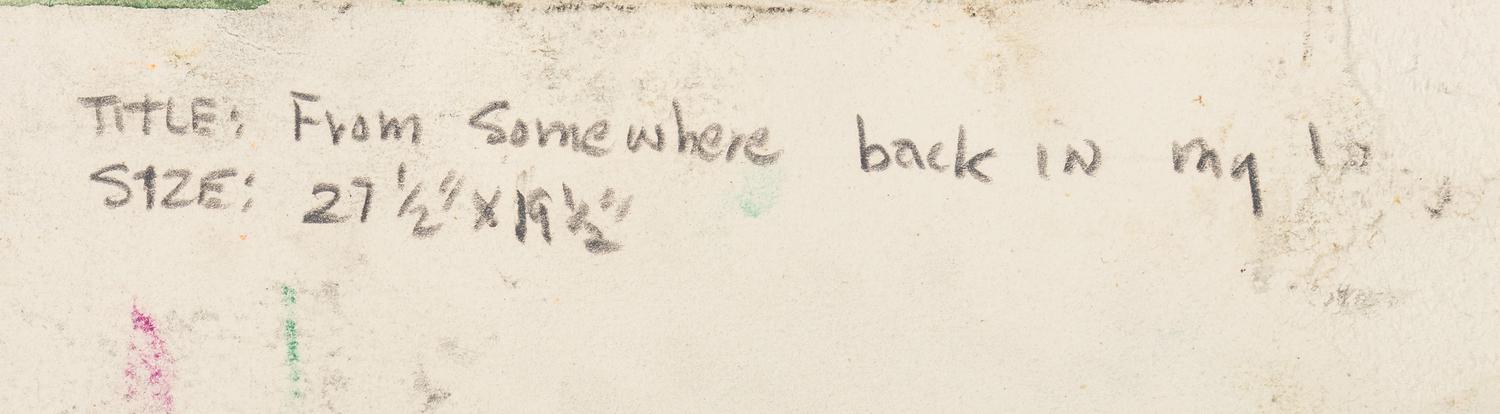 TITLE: From Somewhere back IN my
SIZE: 27 1/2" X 19 1/2"